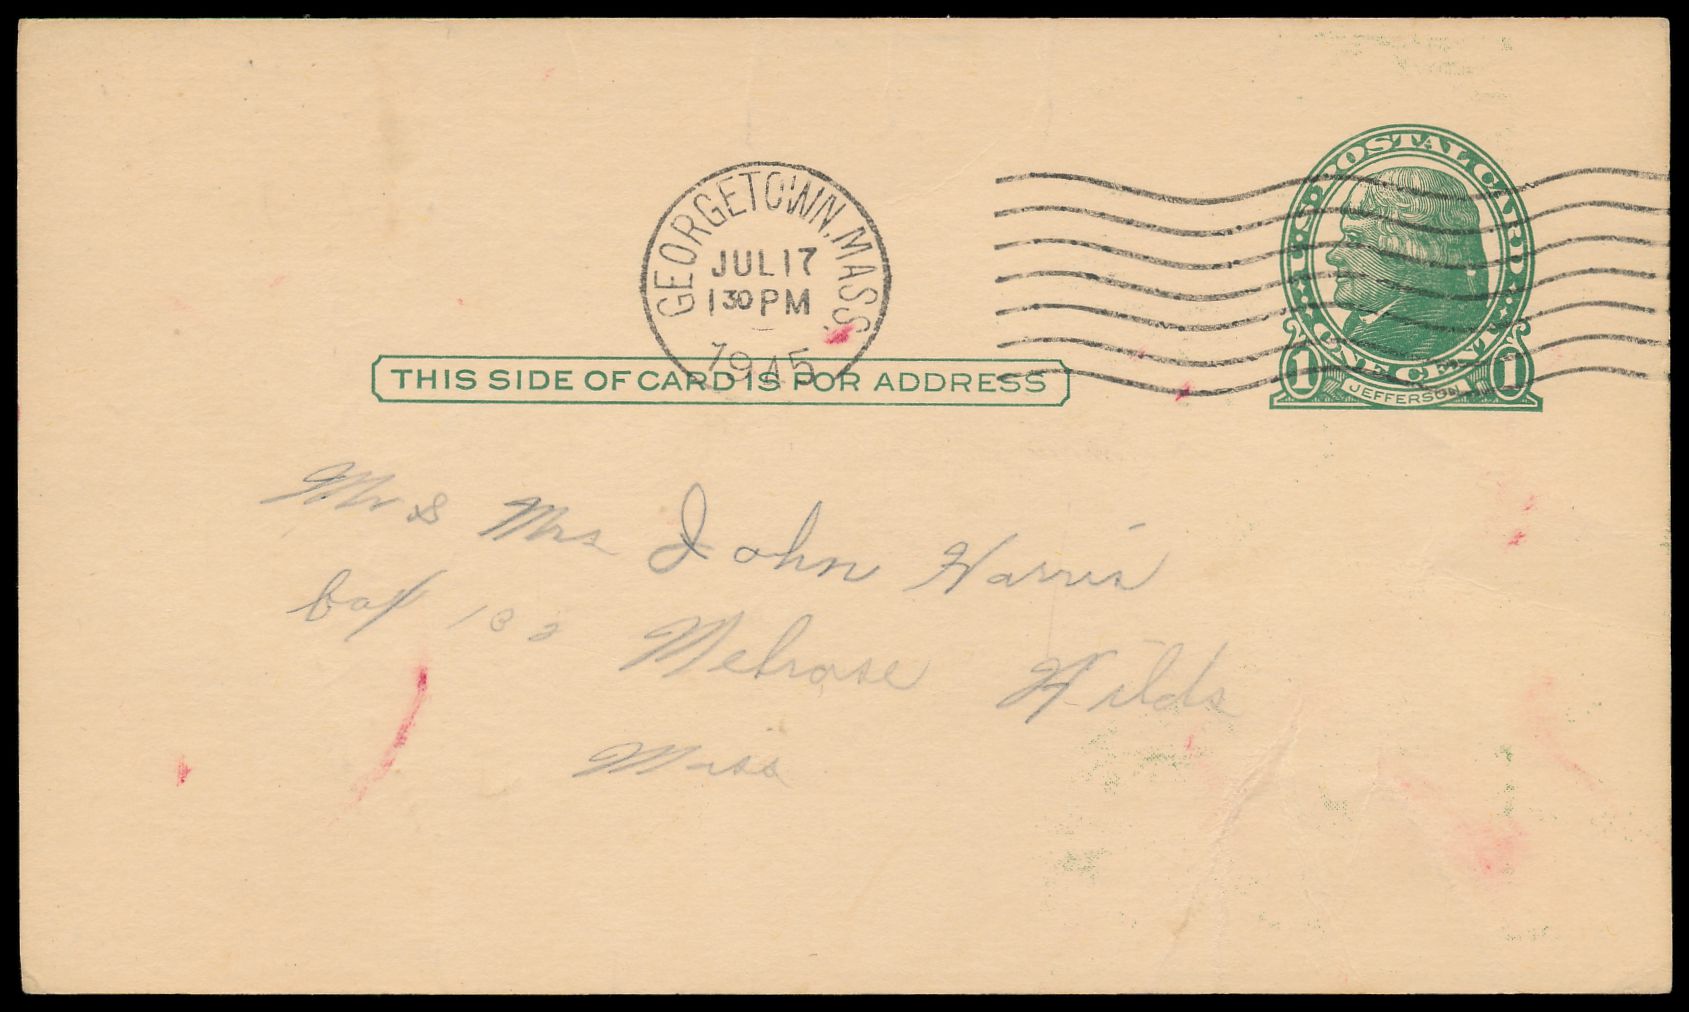 GEORGETOWN, MASS.
JUL 17
1 30 PM
1945
U.S. POSTAL CARD
ONE CENT
1 JEFFERSON 1
THIS SIDE OF CARD IS FOR ADDRESS
Mr & Mrs John Harris
box 132 Melrose
Mass